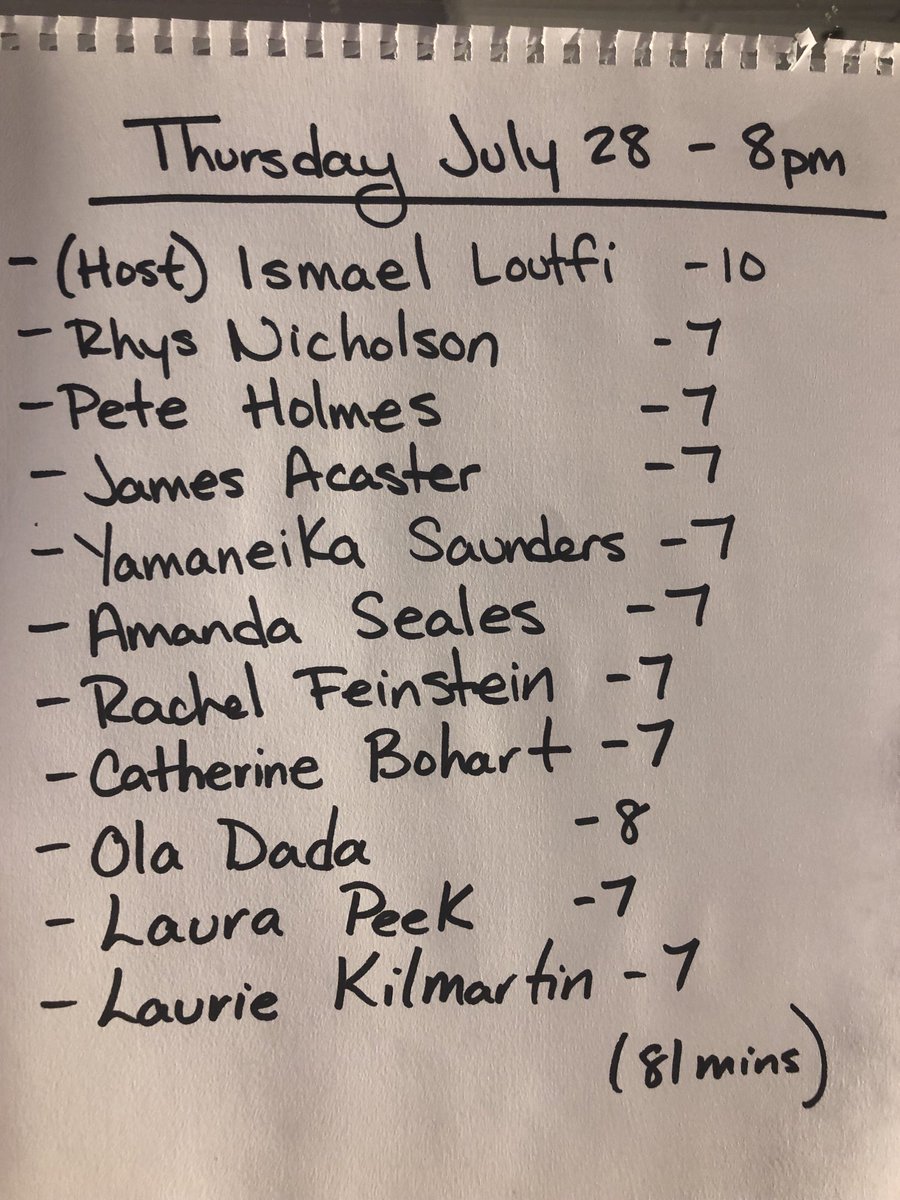 Thursday July 28 - 8pm
- (Host) Ismael Loutfi - 10
- Rhys Nicholson - 7
- Pete Holmes - 7
- James Acaster - 7
- Yamaneika Saunders - 7
- Amanda Seales - 7
- Rachel Feinstein - 7
- Catherine Bohart - 7
- Ola Dada - 8
- Laura Peek - 7
- Laurie Kilmartin - 7
(81 mins)